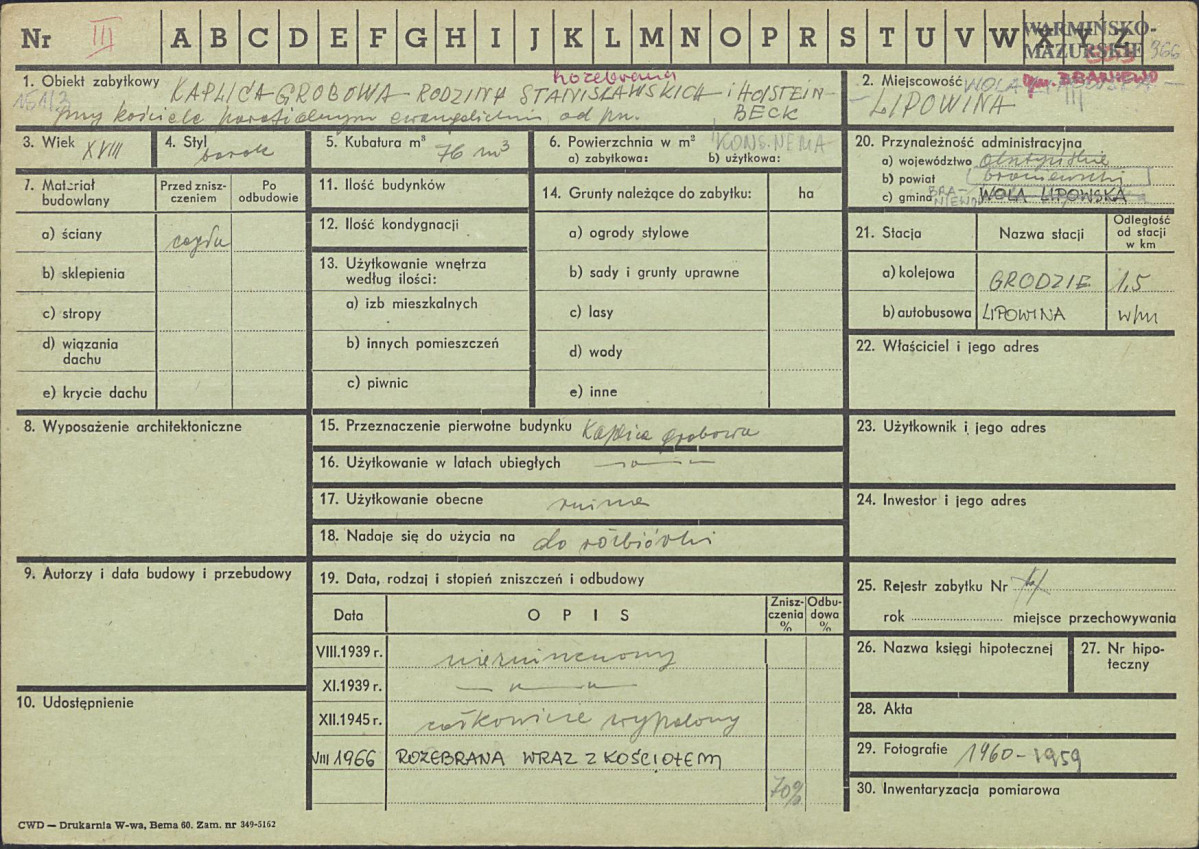 Nr III A B C D E F G H I J K L M N O P R S T U V W X Y Z
WARMIŃSKO-
MAZURSKIE 366
1. Obiekt zabytkowy rozebrana
KAPLICA GROBOWA RODZINY STANISŁAWSKICH i HOLSTEIN-
BECK
przy kościele parafialnym ewangelickim od pn.
2. Miejscowość WOLA LIPOWSKA
gm. BRANIEWO
III
LIPOWINA
3. Wiek XVIII
4. Styl barok
5. Kubatura m³ 76 m³
6. Powierzchnia w m²
a) zabytkowa: b) użytkowa:
KONS. NEMA
20. Przynależność administracyjna
a) województwo olsztyńskie
b) powiat braniewski
c) gmina BRANIEWO WOLA LIPOWSKA
7. Materiał budowlany
Przed znisz-
czeniem
Po
odbudowie
a) ściany cegła
b) sklepienia
c) stropy
d) wiązania
dachu
e) krycie dachu
11. Ilość budynków
12. Ilość kondygnacji
13. Użytkowanie wnętrza
według ilości:
a) izb mieszkalnych
b) innych pomieszczeń
c) piwnic
14. Grunty należące do zabytku: ha
a) ogrody stylowe
b) sady i grunty uprawne
c) lasy
d) wody
e) inne
21. Stacja Nazwa stacji
Odległość
od stacji
w km
a) kolejowa GRODZIE 1,5
b) autobusowa LIPOWINA w/m
22. Właściciel i jego adres
8. Wyposażenie architektoniczne
15. Przeznaczenie pierwotne budynku kaplica grobowa
16. Użytkowanie w latach ubiegłych — " —
17. Użytkowanie obecne ruina
18. Nadaje się do użycia na do rozbiórki
23. Użytkownik i jego adres
24. Inwestor i jego adres
9. Autorzy i data budowy i przebudowy
10. Udostępnienie
19. Data, rodzaj i stopień zniszczeń i odbudowy
Data OPIS
Znisz-
czenia
%
Odbu-
dowa
%
VIII.1939 r. niezniszczony
XI.1939 r. — " — " —
XII.1945 r. całkowicie wypalony
VIII 1966 ROZEBRANA WRAZ Z KOŚCIOŁEM
70%
25. Rejestr zabytku Nr
rok miejsce przechowywania
26. Nazwa księgi hipotecznej
27. Nr hipo-
teczny
28. Akta
29. Fotografie 1960-1959
30. Inwentaryzacja pomiarowa
CWD — Drukarnia W-wa, Bema 60. Zam. nr 349-5162